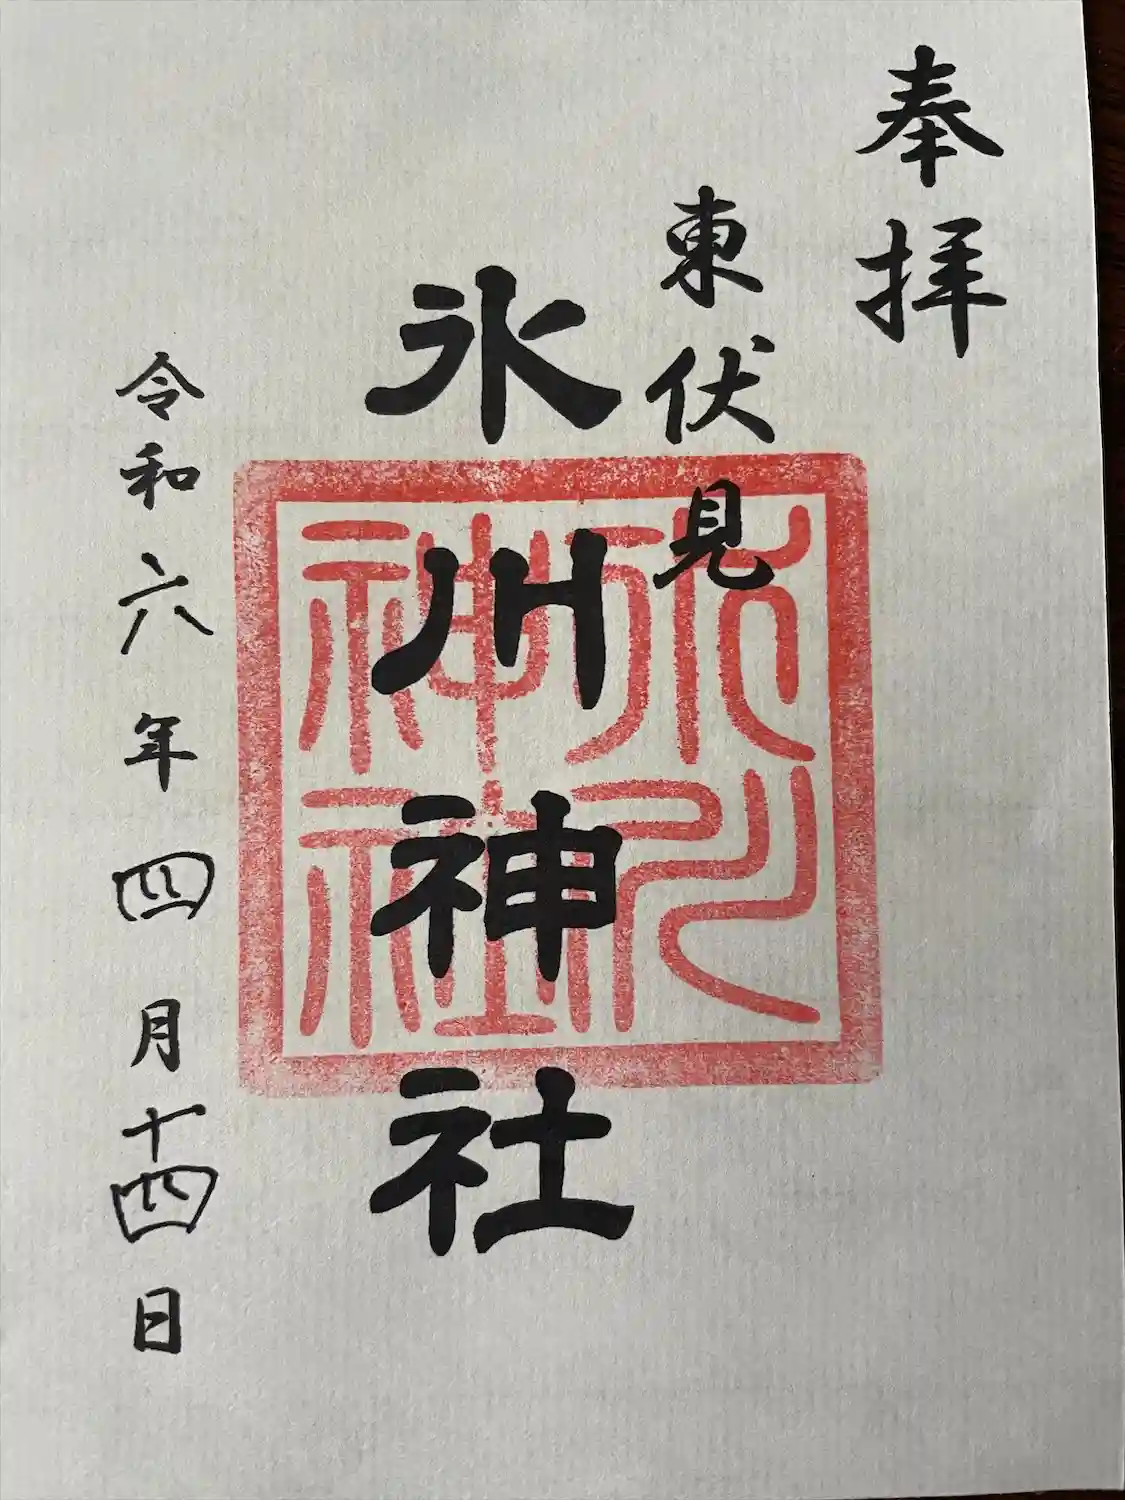 奉拝
東伏見
氷川神社
氷川神社
令和六年四月十四日